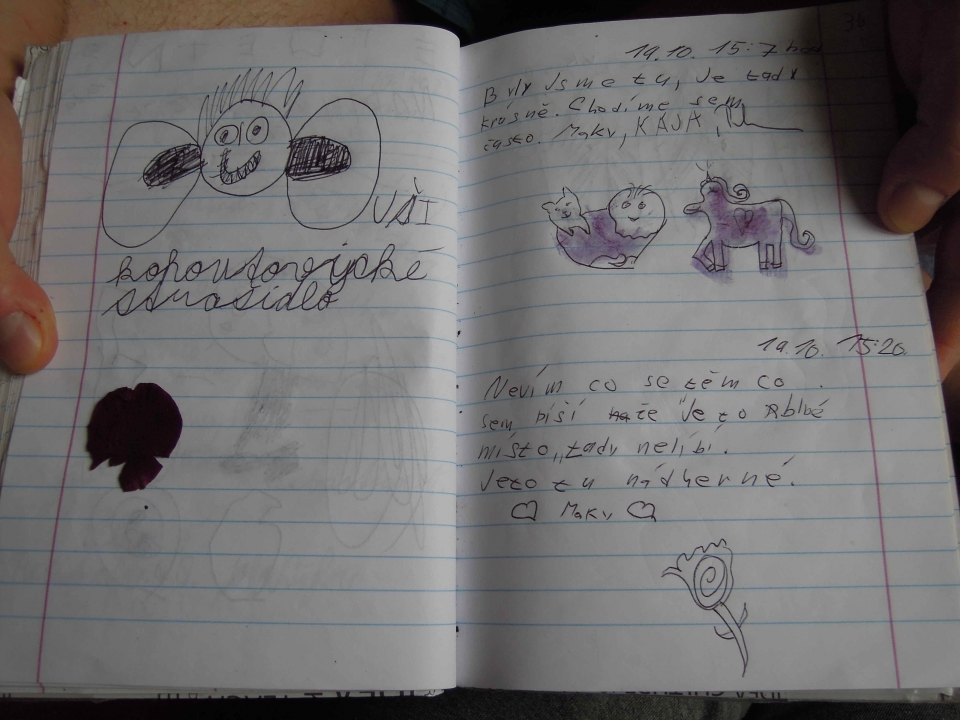 UŠI
strašidlo
19.10. 15:7 hod
Byly jsme tu, je tady
krásně. Chodíme sem
často. Maky, KÁJA,
19.10. 15:20.
Nevím co se těm co
sem píší že je to blbé
místo, tady nelíbí.
Jeto tu nádherné.
Maky